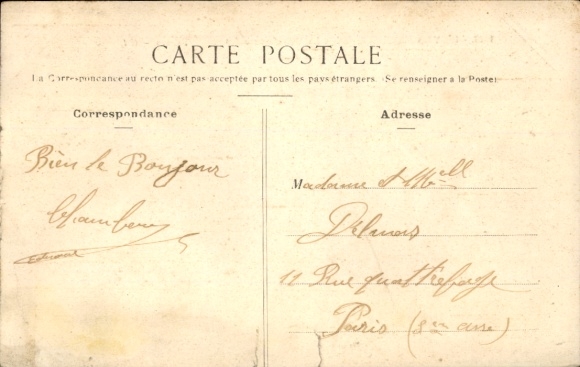 CARTE POSTALE
La Correspondance au recto n'est pas acceptée par tous les pays étrangers. (Se renseigner à la Poste)
Correspondance
Adresse
Bien le Bonjour
Madame & Mell
Delmas
11 Rue quatrefage
Paris (5em arre)